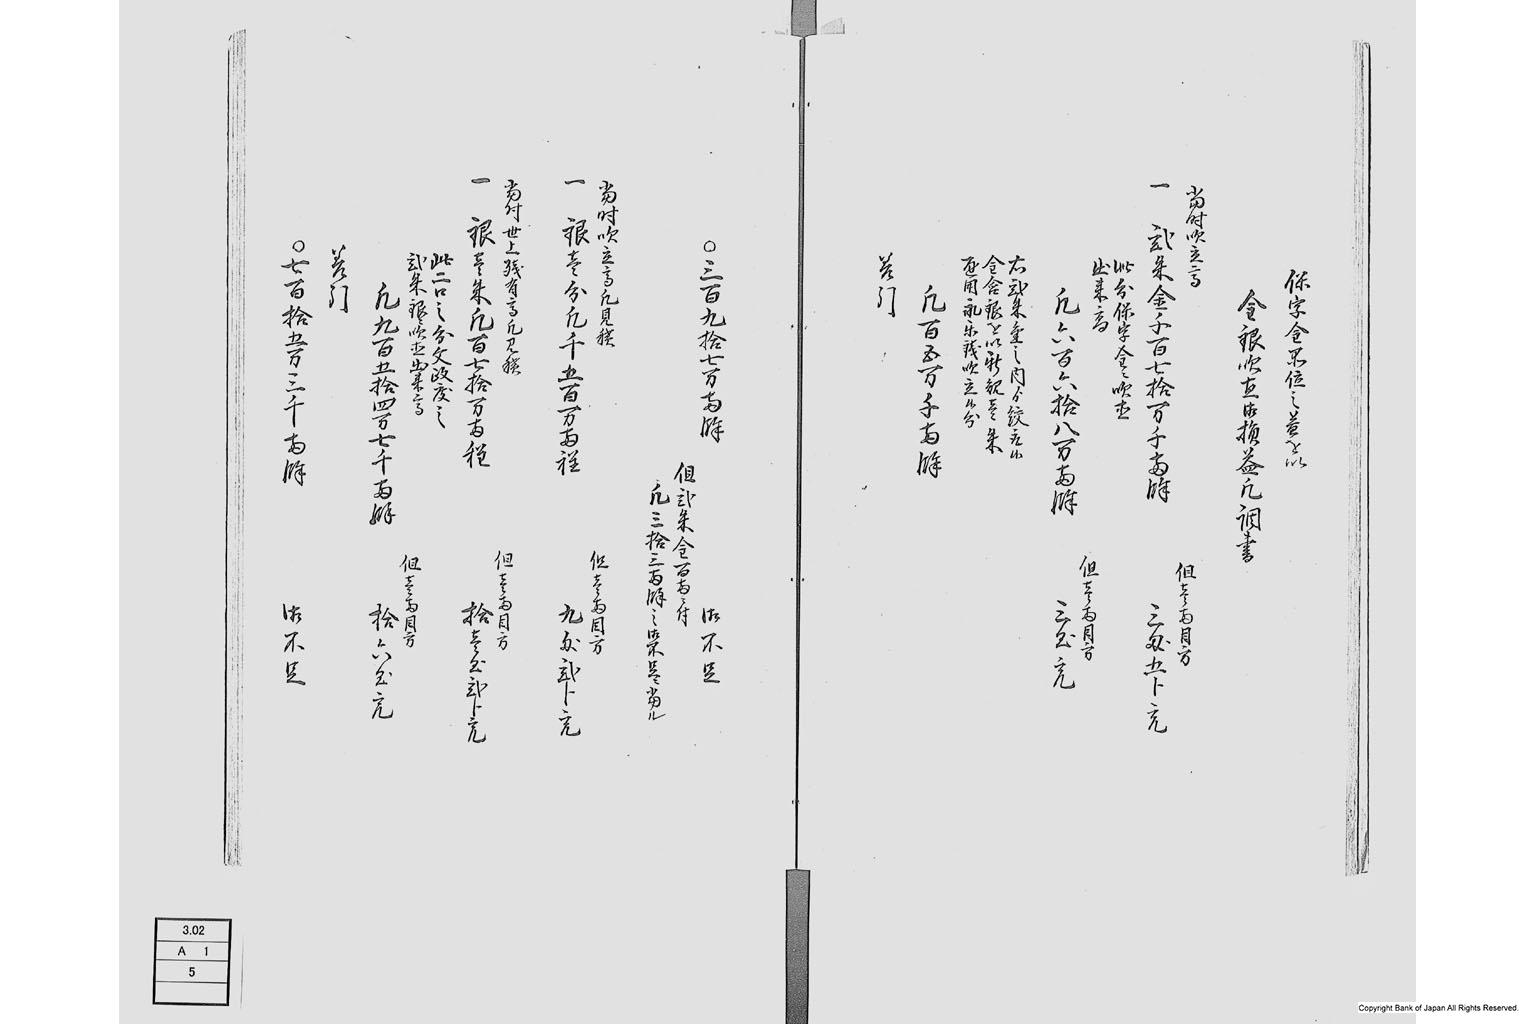 保字金品位之益を以
金銀吹直御損益凡調書
当時吹立高
一 弐朱金千百七拾万千両余
但壱両目方
三匁五分宛
此分保字金ニ吹直
出来高
凡六百六拾八万両余
但壱両目方
三匁宛
右弐朱金之内分絞立候
金含銀を以新規壱朱
凡百五万千両余
差引
○三百九拾七万両余
御不足
但弐朱金百両ニ付
凡三拾三両余之御不足ニ当ル
当時吹立高凡見積
一 銀壱分凡千五百万両程
但壱両目方
九匁弐分宛
当時世上残有高凡見積
一 銀壱朱凡百七拾万両程
但壱両目方
拾壱匁弐分宛
此二口之分文政度之
弐朱銀ニ吹直出来高
凡九百五拾四万七千両余
但壱両目方
拾六匁宛
差引
○七百拾五万三千両余
御不足
3.02
A 1
5
Copyright Bank of Japan All Rights Reserved.